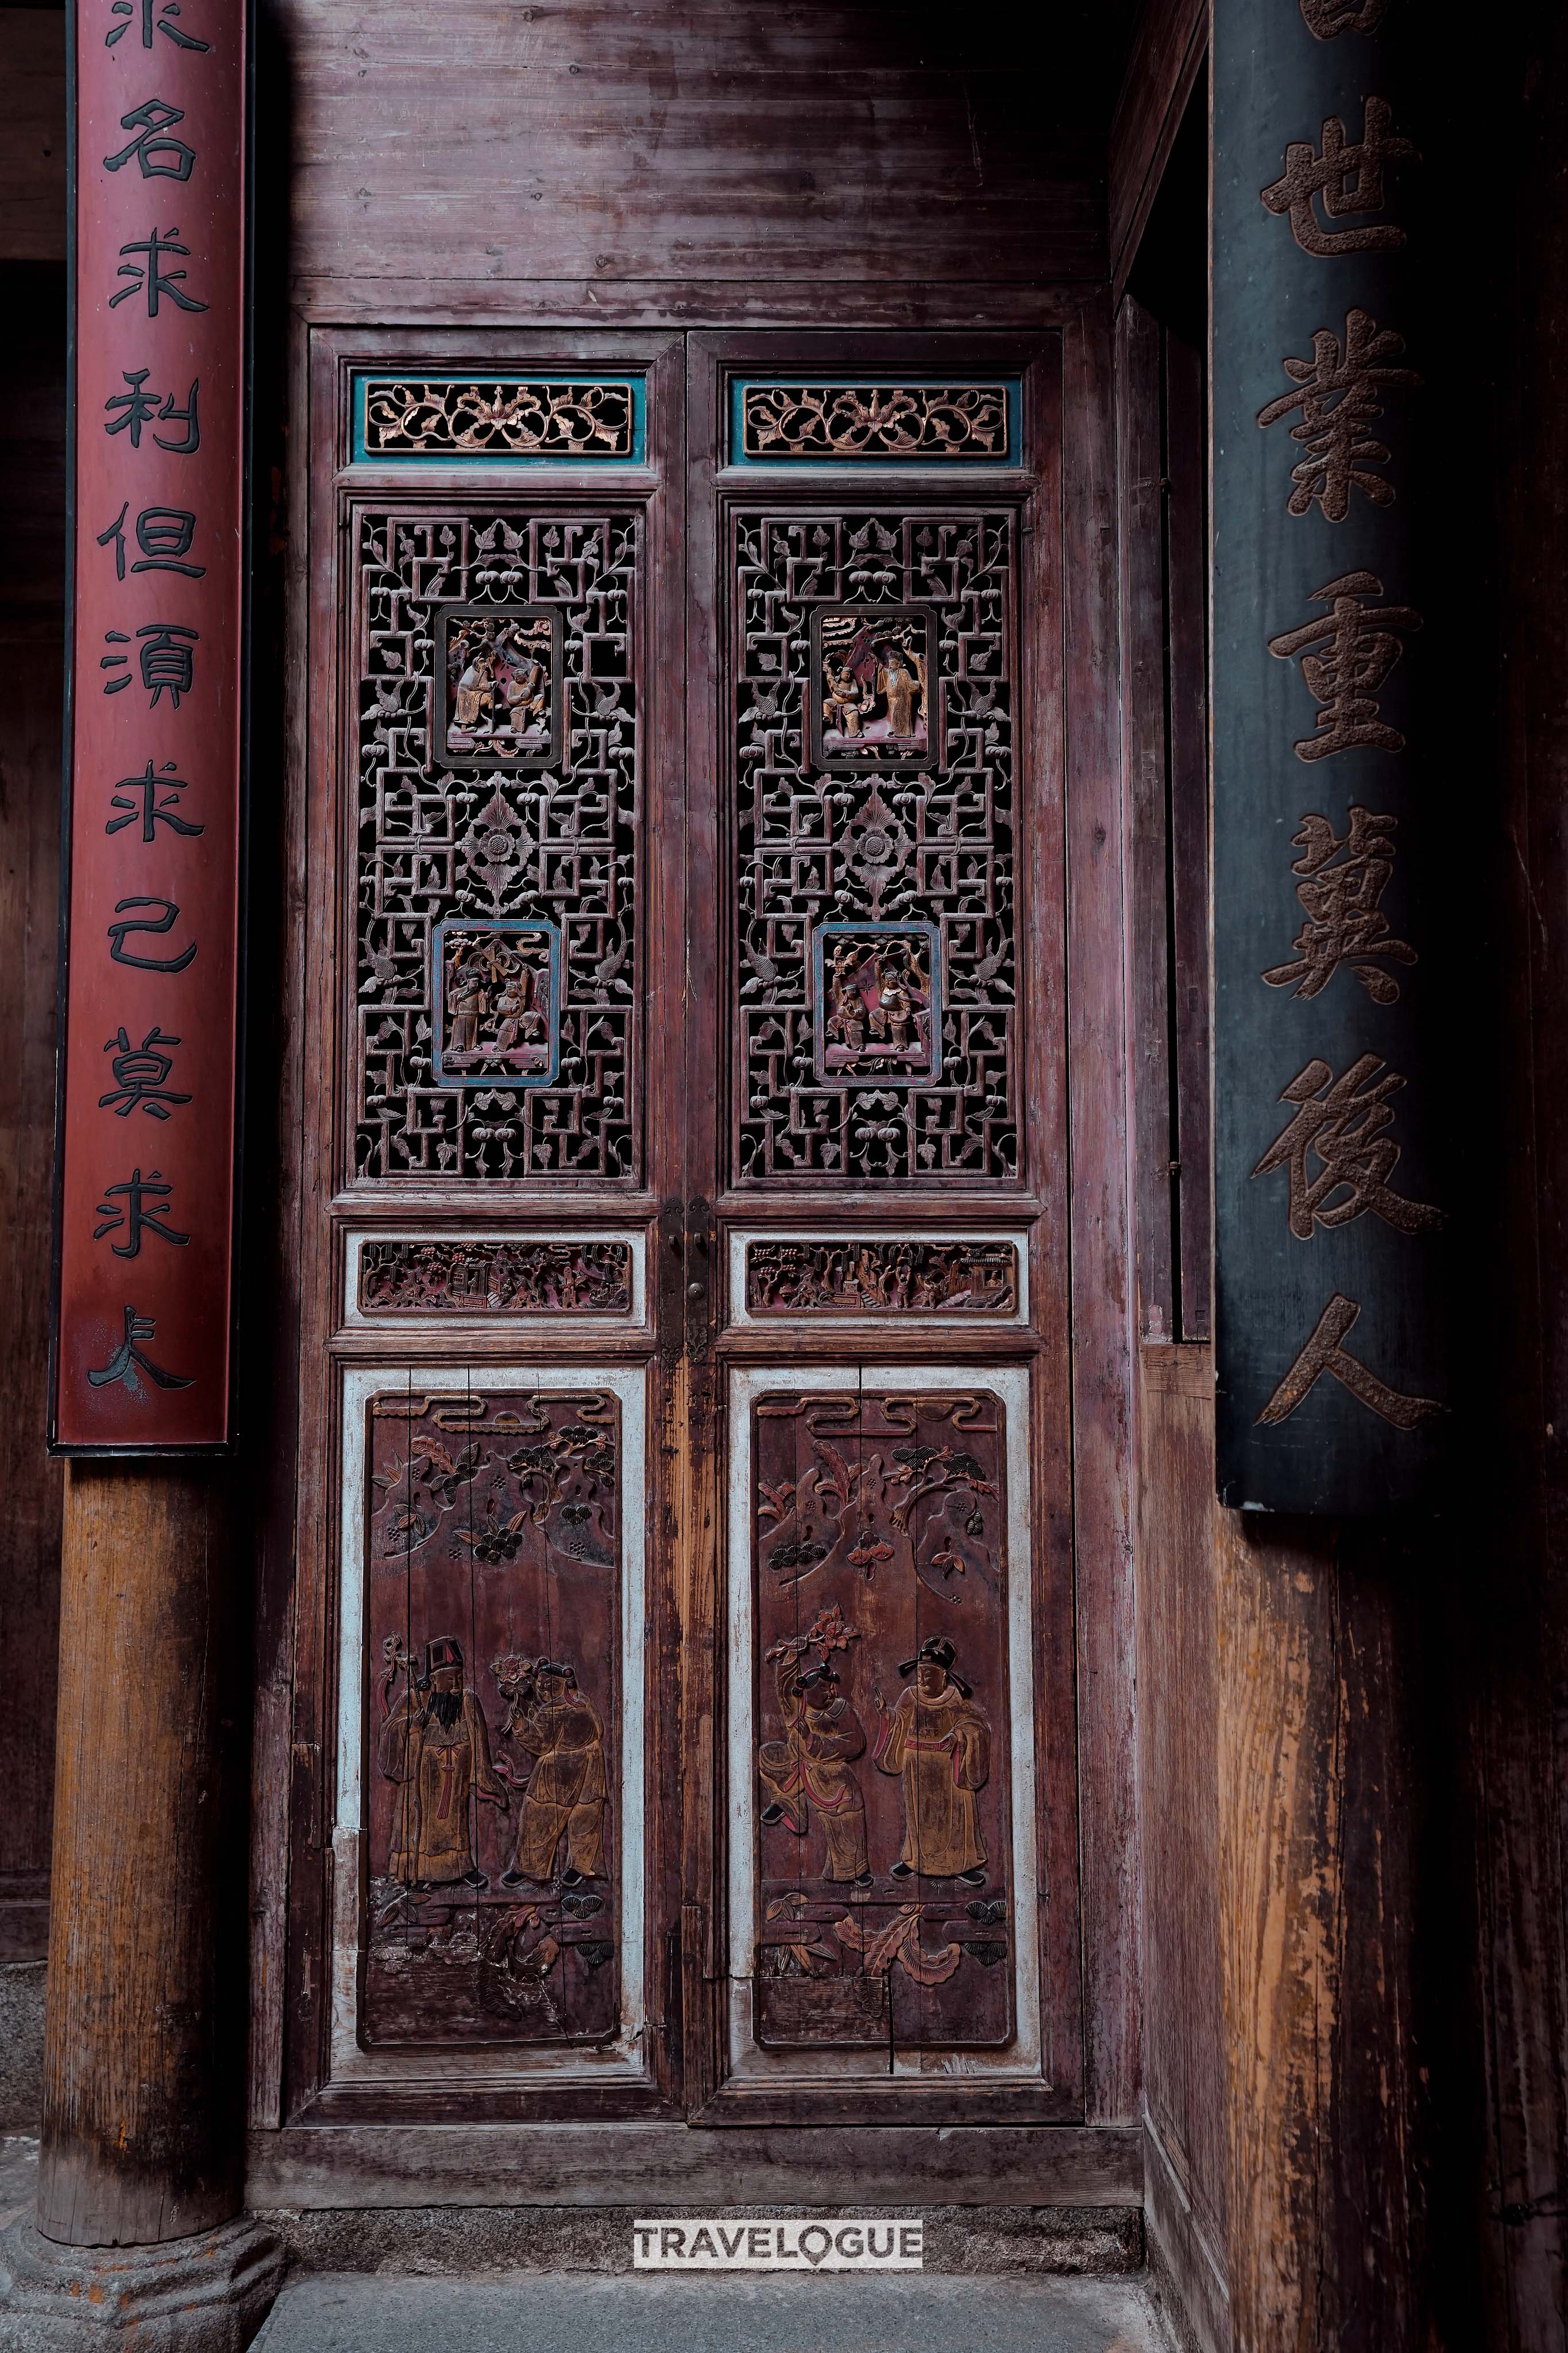 世業重冀後人
求名求利但須求己莫求人
TRAVELOGUE